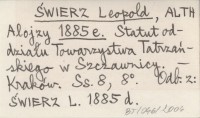 ŚWIERZ Leopold, ALTH
Alojzy 1885 e. Statut od-
działu Towarzystwa Tatrzań-
skiego w Szczawnicy. —
Kraków. Ss. 8, 8°. Odb. z:
ŚWIERZ L. 1885 d.